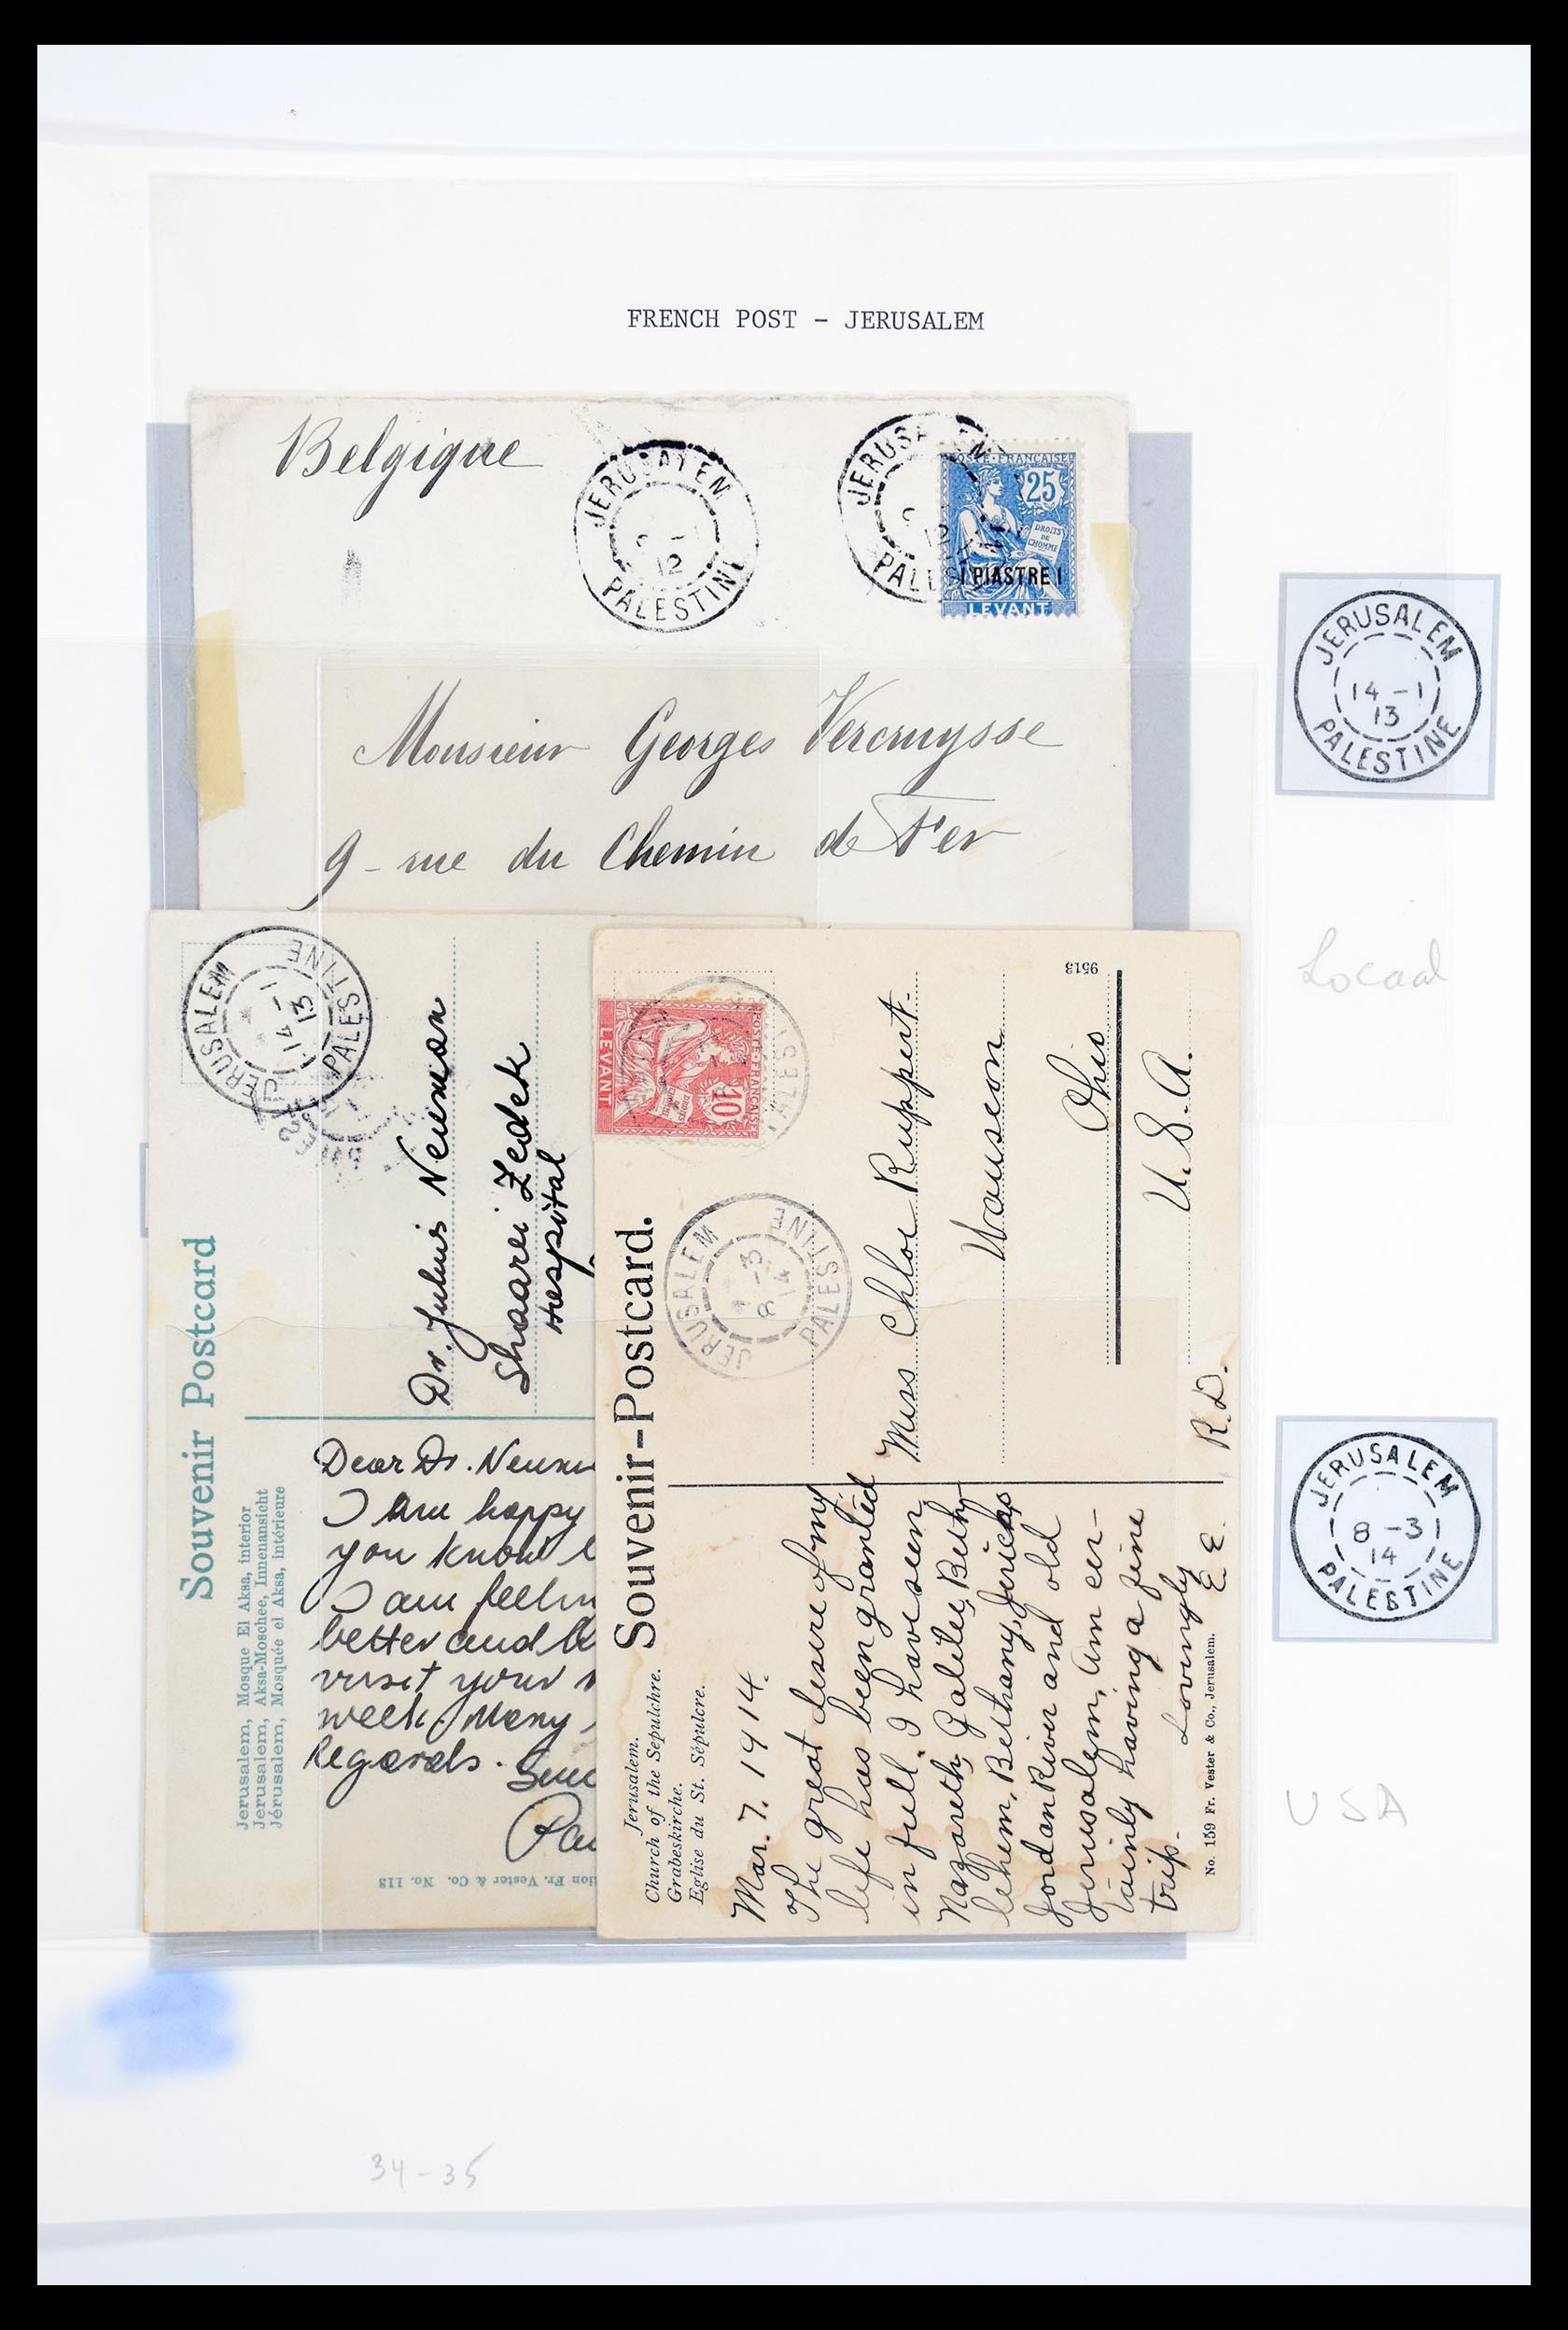 FRENCH POST - JERUSALEM
Belgique
JERUSALEM
12
PALESTINE
JERUSALEM
12
POSTE·FRANÇAISE
25
DROITS
DE
L'HOMME
1 PIASTRE 1
LEVANT
Monsieur Georges Vercruysse
9 - rue du Chemin de Fer
JERUSALEM
14 -1
13
PALESTINE
Locaal
JERUSALEM
14 -1
13
PALESTINE
Souvenir Postcard
Jerusalem, Mosque El Aksa, interior
Jerusalem, Aksa-Moschee, Innenansicht
Jérusalem, Mosquée el Aksa, intérieure
Dr. Julius Neuman
Shaarei Zedek
Hospital
Dear Dr.
I am happy
you know
I am
better and
visit your
week. Many
Regards.
ion Fr. Vester & Co. No. 113
9513
POSTE·FRANÇAISE
10
LEVANT
Souvenir-Postcard.
JERUSALEM
8 -3
14
PALESTINE
Miss Chloe Ruppert.
Wauseon
Ohio
U.S.A.
R.D.
Jerusalem.
Church of the Sepulchre.
Grabeskirche.
Eglise du St. Sépulcre.
Mar. 7. 1914.
The great desire of my
life has been granted
in full. I have seen
Nazareth, Galilee, Beth-
lehem, Bethany, Jericho
Jordan River and old
Jerusalem, Am cer-
tainly having a fine
trip.
Lovingly
E E.
No. 159 Fr. Vester & Co., Jerusalem.
JERUSALEM
8 -3
14
PALESTINE
USA
34-35